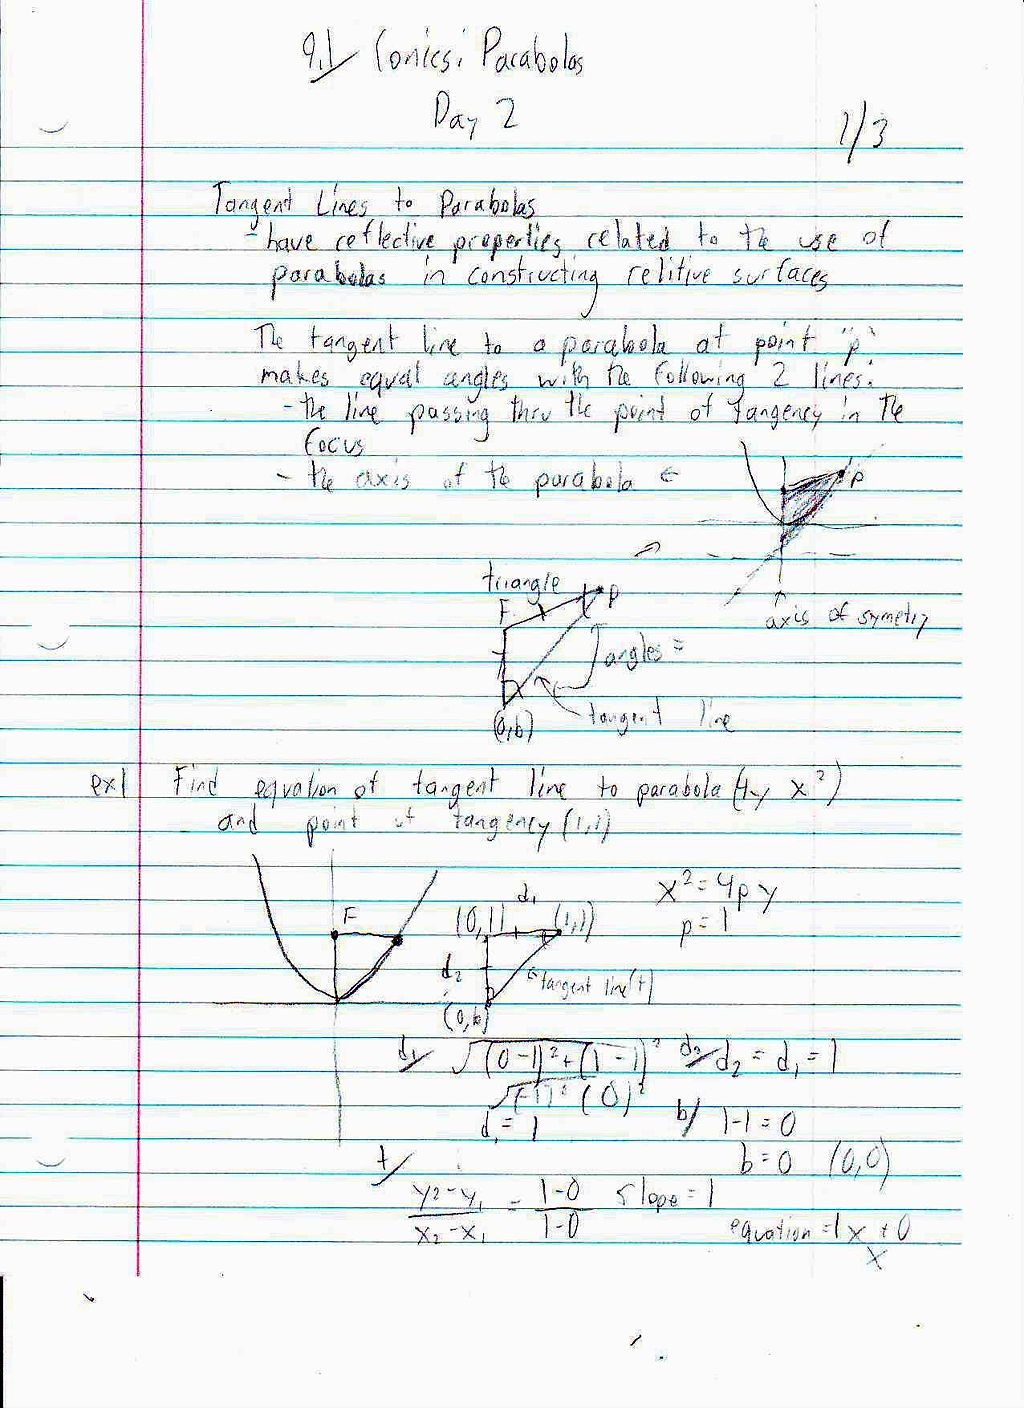 9.1 Conics: Parabolas
Day 2
1/3
Tangent Lines to Parabolas
- have reflective properties related to the use of
parabolas in constructing relitive surfaces
The tangent line to a parabola at point "p"
makes equal angles with the following 2 lines:
- the line passing thru the point of tangency in the
focus
- the axis of the parabola ←
P
axis of symetry
triangle
F
P
angles =
(0,b)
tangent line
ex1 Find equation of tangent line to parabola (4y x²)
and point of tangency (1,1)
F
(0,1) d₁ (1,1)
d₂
← tangent line (t)
(0,b)
x² = 4py
p = 1
d₁/ √(0-1)² + (1-1)² d₂/ d₂ = d₁ = 1
√(-1)² (0)²
d₁ = 1
b/ 1-1 = 0
b = 0 (0,0)
t/
y₂-y₁ / x₂-x₁ = 1-0 / 1-0 slope = 1
equation = 1x + 0
x